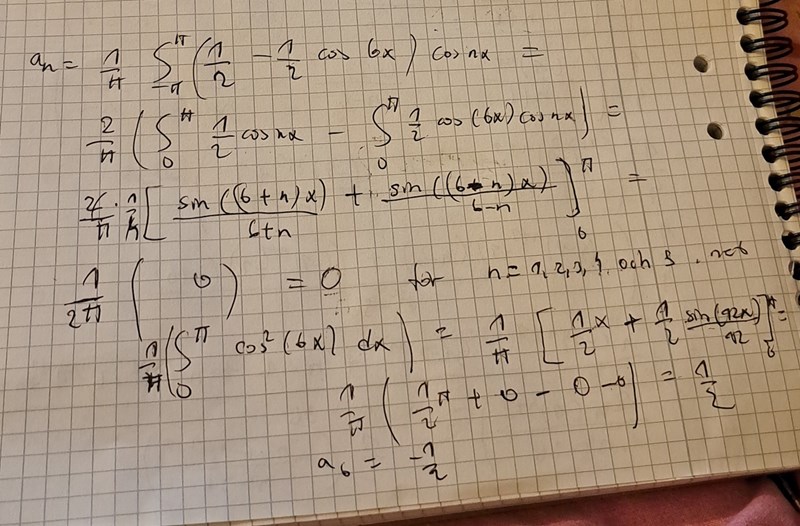 aₙ = 1/π ∫_{-π}^{π} (1/2 - 1/2 cos 6x) cos nx =
2/π (∫_0^π 1/2 cos nx - ∫_0^π 1/2 cos(6x) cos nx) =
[ sin((6+n)x)/(6+n) + sin((6-n)x)/(6-n) ]_0^π =
1/(2π) ( 0 ) = 0 for n = 1, 2, 3, 4, och 5.
1/π (∫_0^π cos²(6x) dx) = 1/π [ 1/2 x + 1/2 sin(12x)/12 ]_0^π =
1/π ( 1/2 π + 0 - 0 - 0 ) = 1/2
a₆ = -1/2